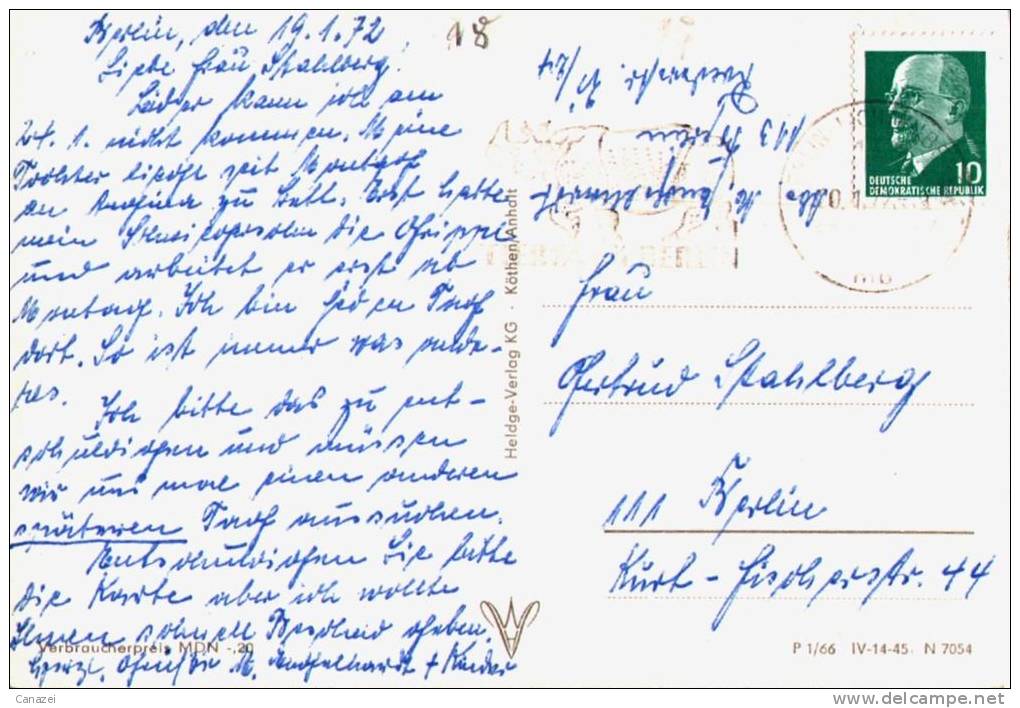 Berlin, den 19.1.72
18
Liebe Frau Stahlberg.
Leider kann ich am
24. 1. nicht kommen. Meine
Tochter liegt seit Montag
an Angina zu Bett. Erst hatte
mein Schwiegersohn die Grippe
und arbeitet er erst ab
Montag. Ich bin jeden Tag
dort. So ist immer was ande-
res.
Ich bitte das zu ent-
schuldigen und müssen
wir uns mal einen anderen
späteren Tag aussuchen.
Entschuldigen Sie bitte
die Karte aber ich wollte
Ihnen schnell Bescheid geben.
Herzl. Grüße M. Engelhardt + Kinder
Verbraucherpreis MDN -,20
Heldge-Verlag KG · Köthen/Anhalt
Abs.
113 Berlin
10
DEUTSCHE
DEMOKRATISCHE REPUBLIK
Frau
Gertrud Stahlberg
111 Berlin
Kurt-Fischerstr. 44
P 1/66 IV-14-45 N 7054
Canazei
delcampe.net